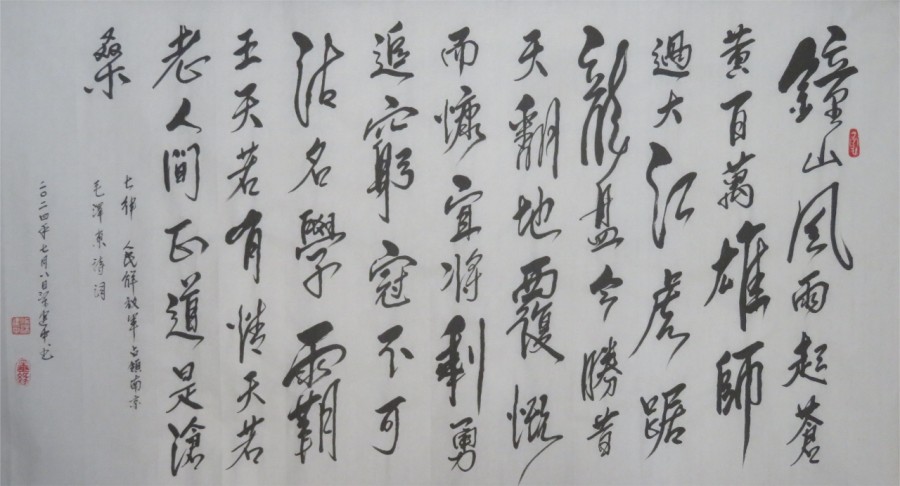 鐘山風雨起蒼
黄百萬雄師
過大江虎踞
龍盘今勝昔
天翻地覆慨
而慷宜将剩勇
追窮寇不可
沽名學霸
王天若有情天若
老人間正道是滄
桑
七律 人民解放軍占領南京
毛澤東詩词
二〇二四年七月八日